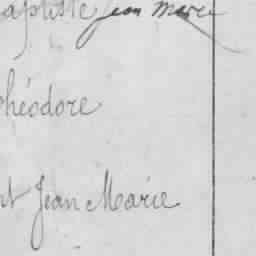 aptiste Jean Marie
héodore
nt Jean Marie